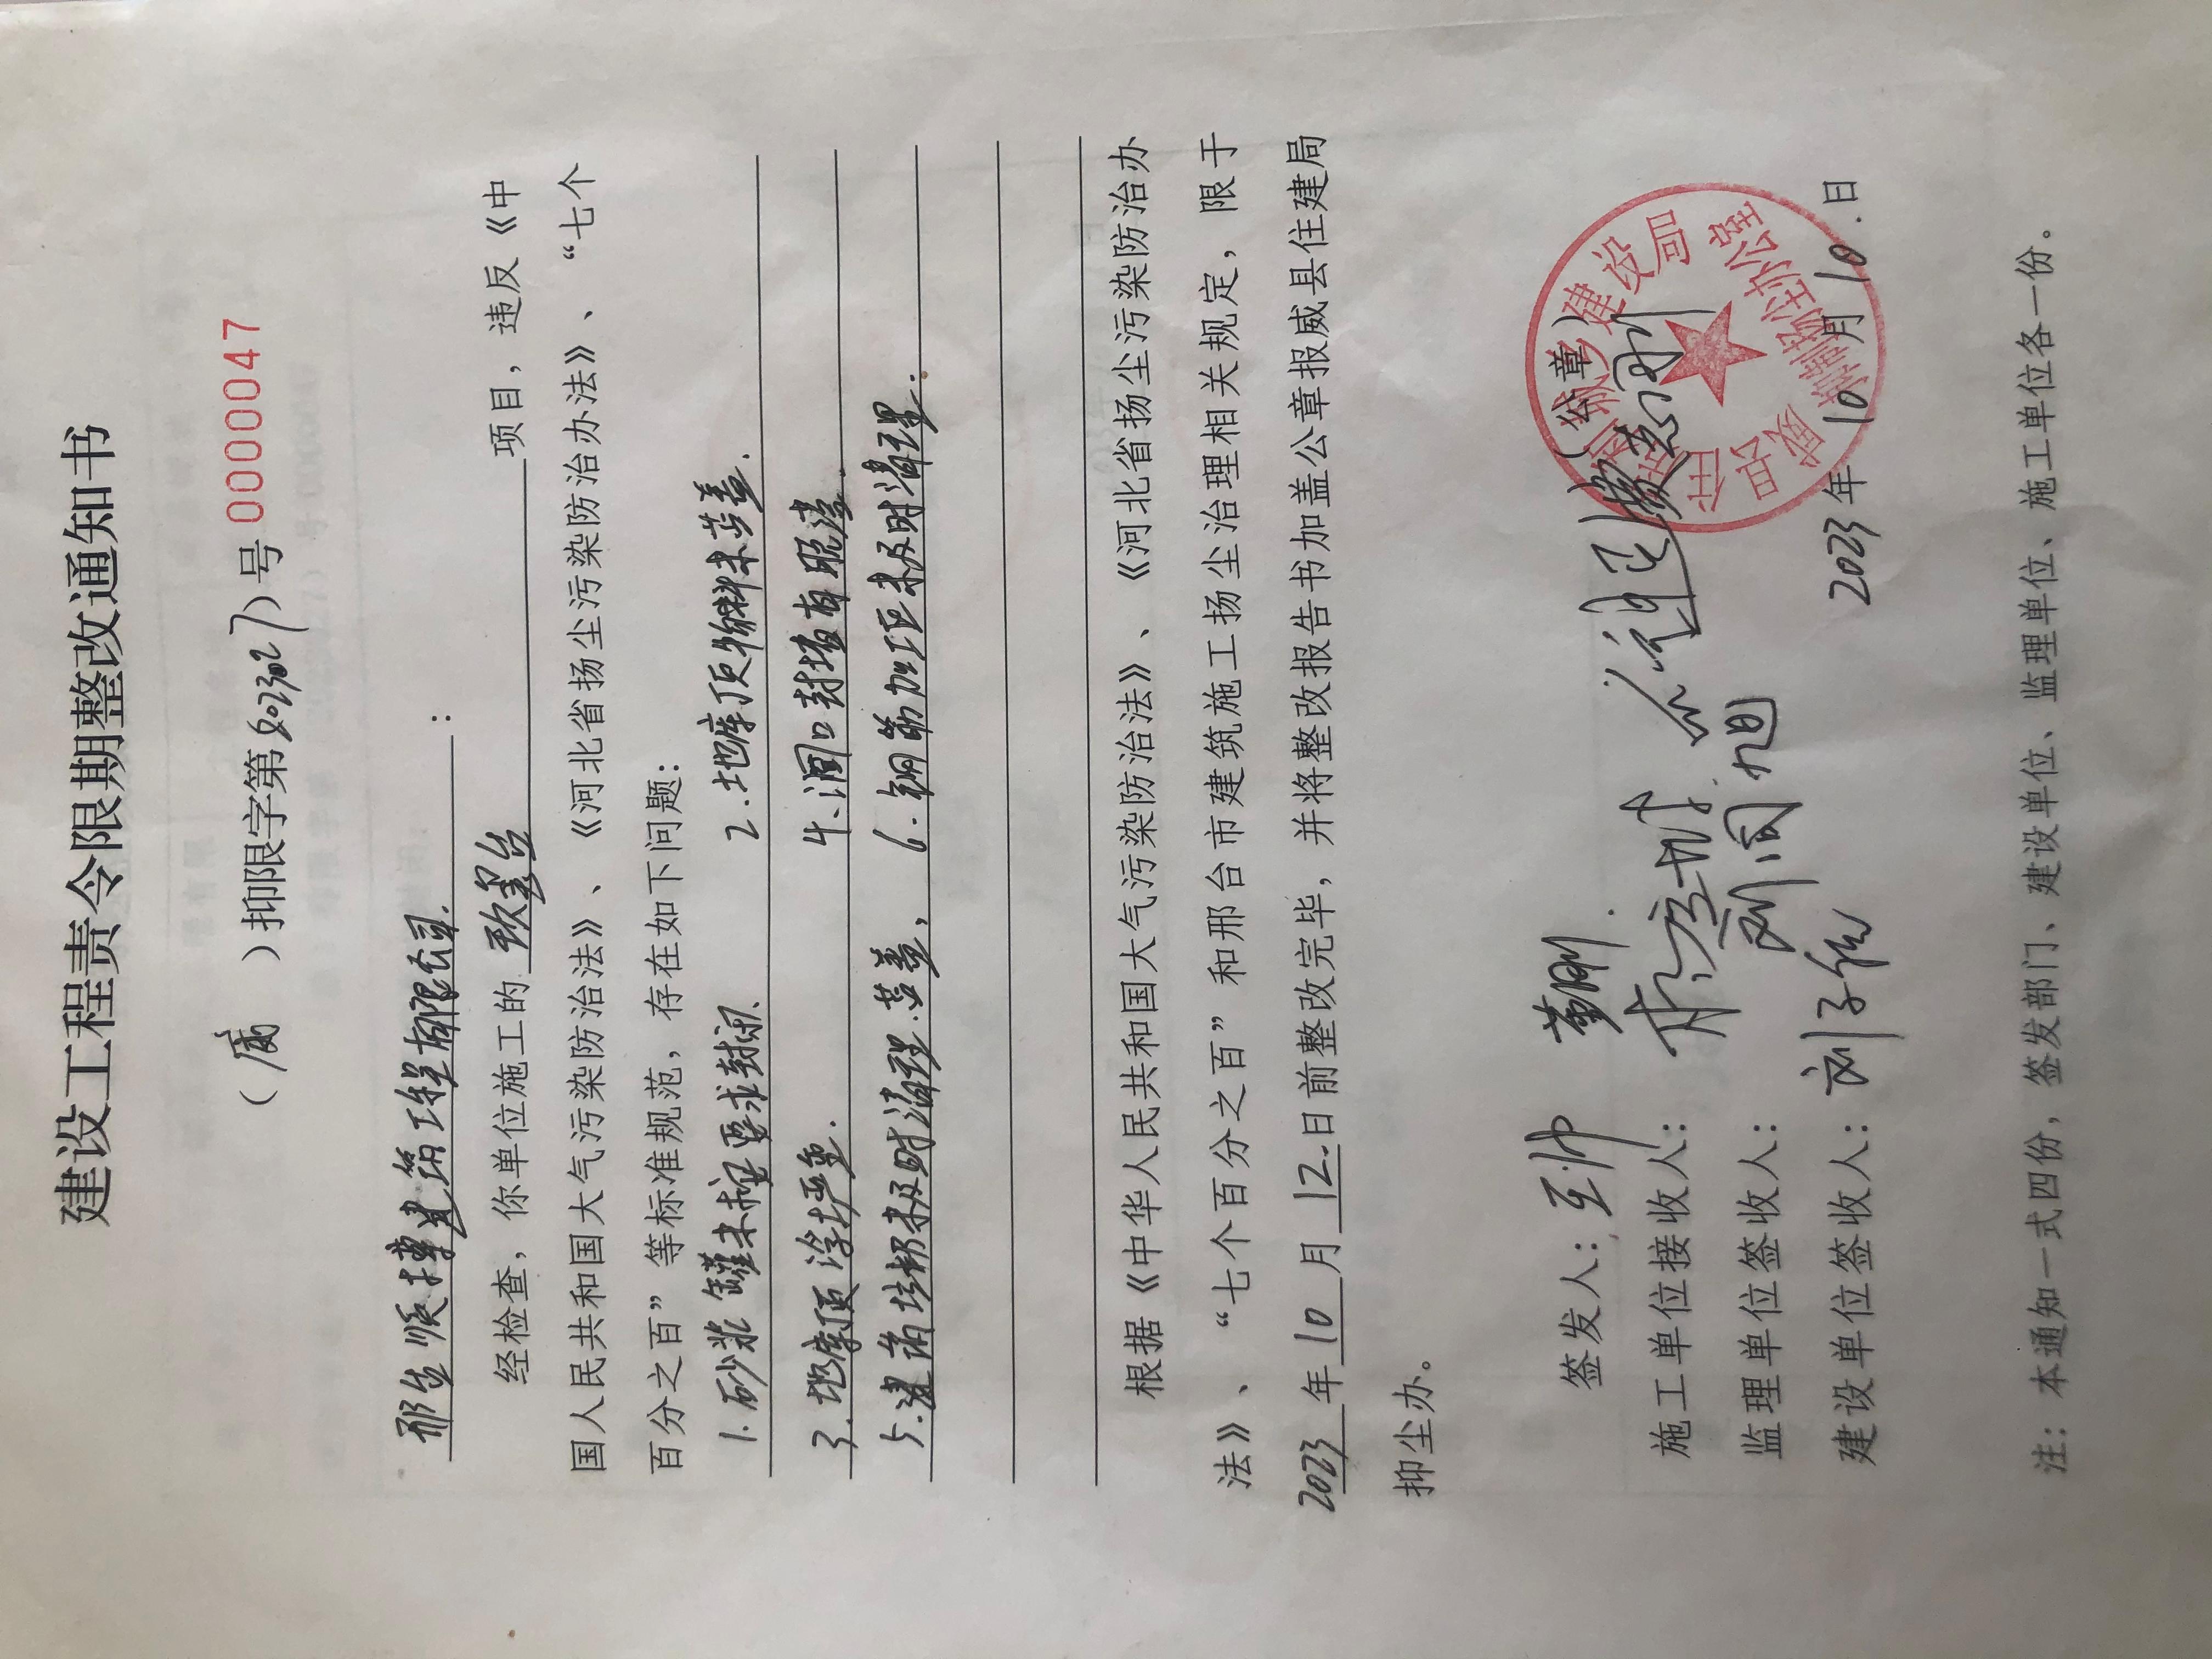 建设工程责令限期整改通知书
（威）抑限字第2023027）号 0000047
邢台顺博建筑工程有限公司.：
经检查，你单位施工的 玖玺台 项目，违反《中
国人民共和国大气污染防治法》、《河北省扬尘污染防治办法》、“七个
百分之百”等标准规范，存在如下问题：
1.砂浆罐未按要求封闭. 2.地库顶物料未苫盖.
3.地库顶浮土严重. 4.洞口封堵有脱落.
5.建筑垃圾未及时清理.苫盖, 6.钢筋加工区未及时清理.
根据《中华人民共和国大气污染防治法》、《河北省扬尘污染防治办
法》、“七个百分之百”和邢台市建筑施工扬尘治理相关规定，限于
2023年10月12.日前整改完毕，并将整改报告书加盖公章报威县住建局
抑尘办。
签发人：王帅 （公章）
施工单位接收人：
监理单位签收人：
建设单位签收人：刘子
2023年10月10.日
注：本通知一式四份，签发部门、建设单位、监理单位、施工单位各一份。